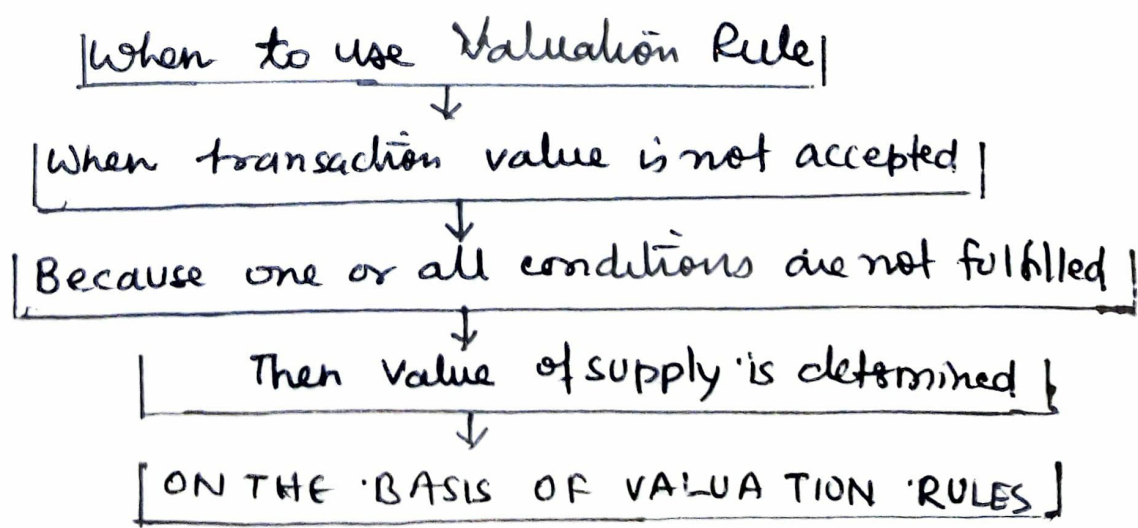 When to use Valuation Rule
When transaction value is not accepted
Because one or all conditions are not fulfilled
Then Value of supply is determined
ON THE BASIS OF VALUATION RULES